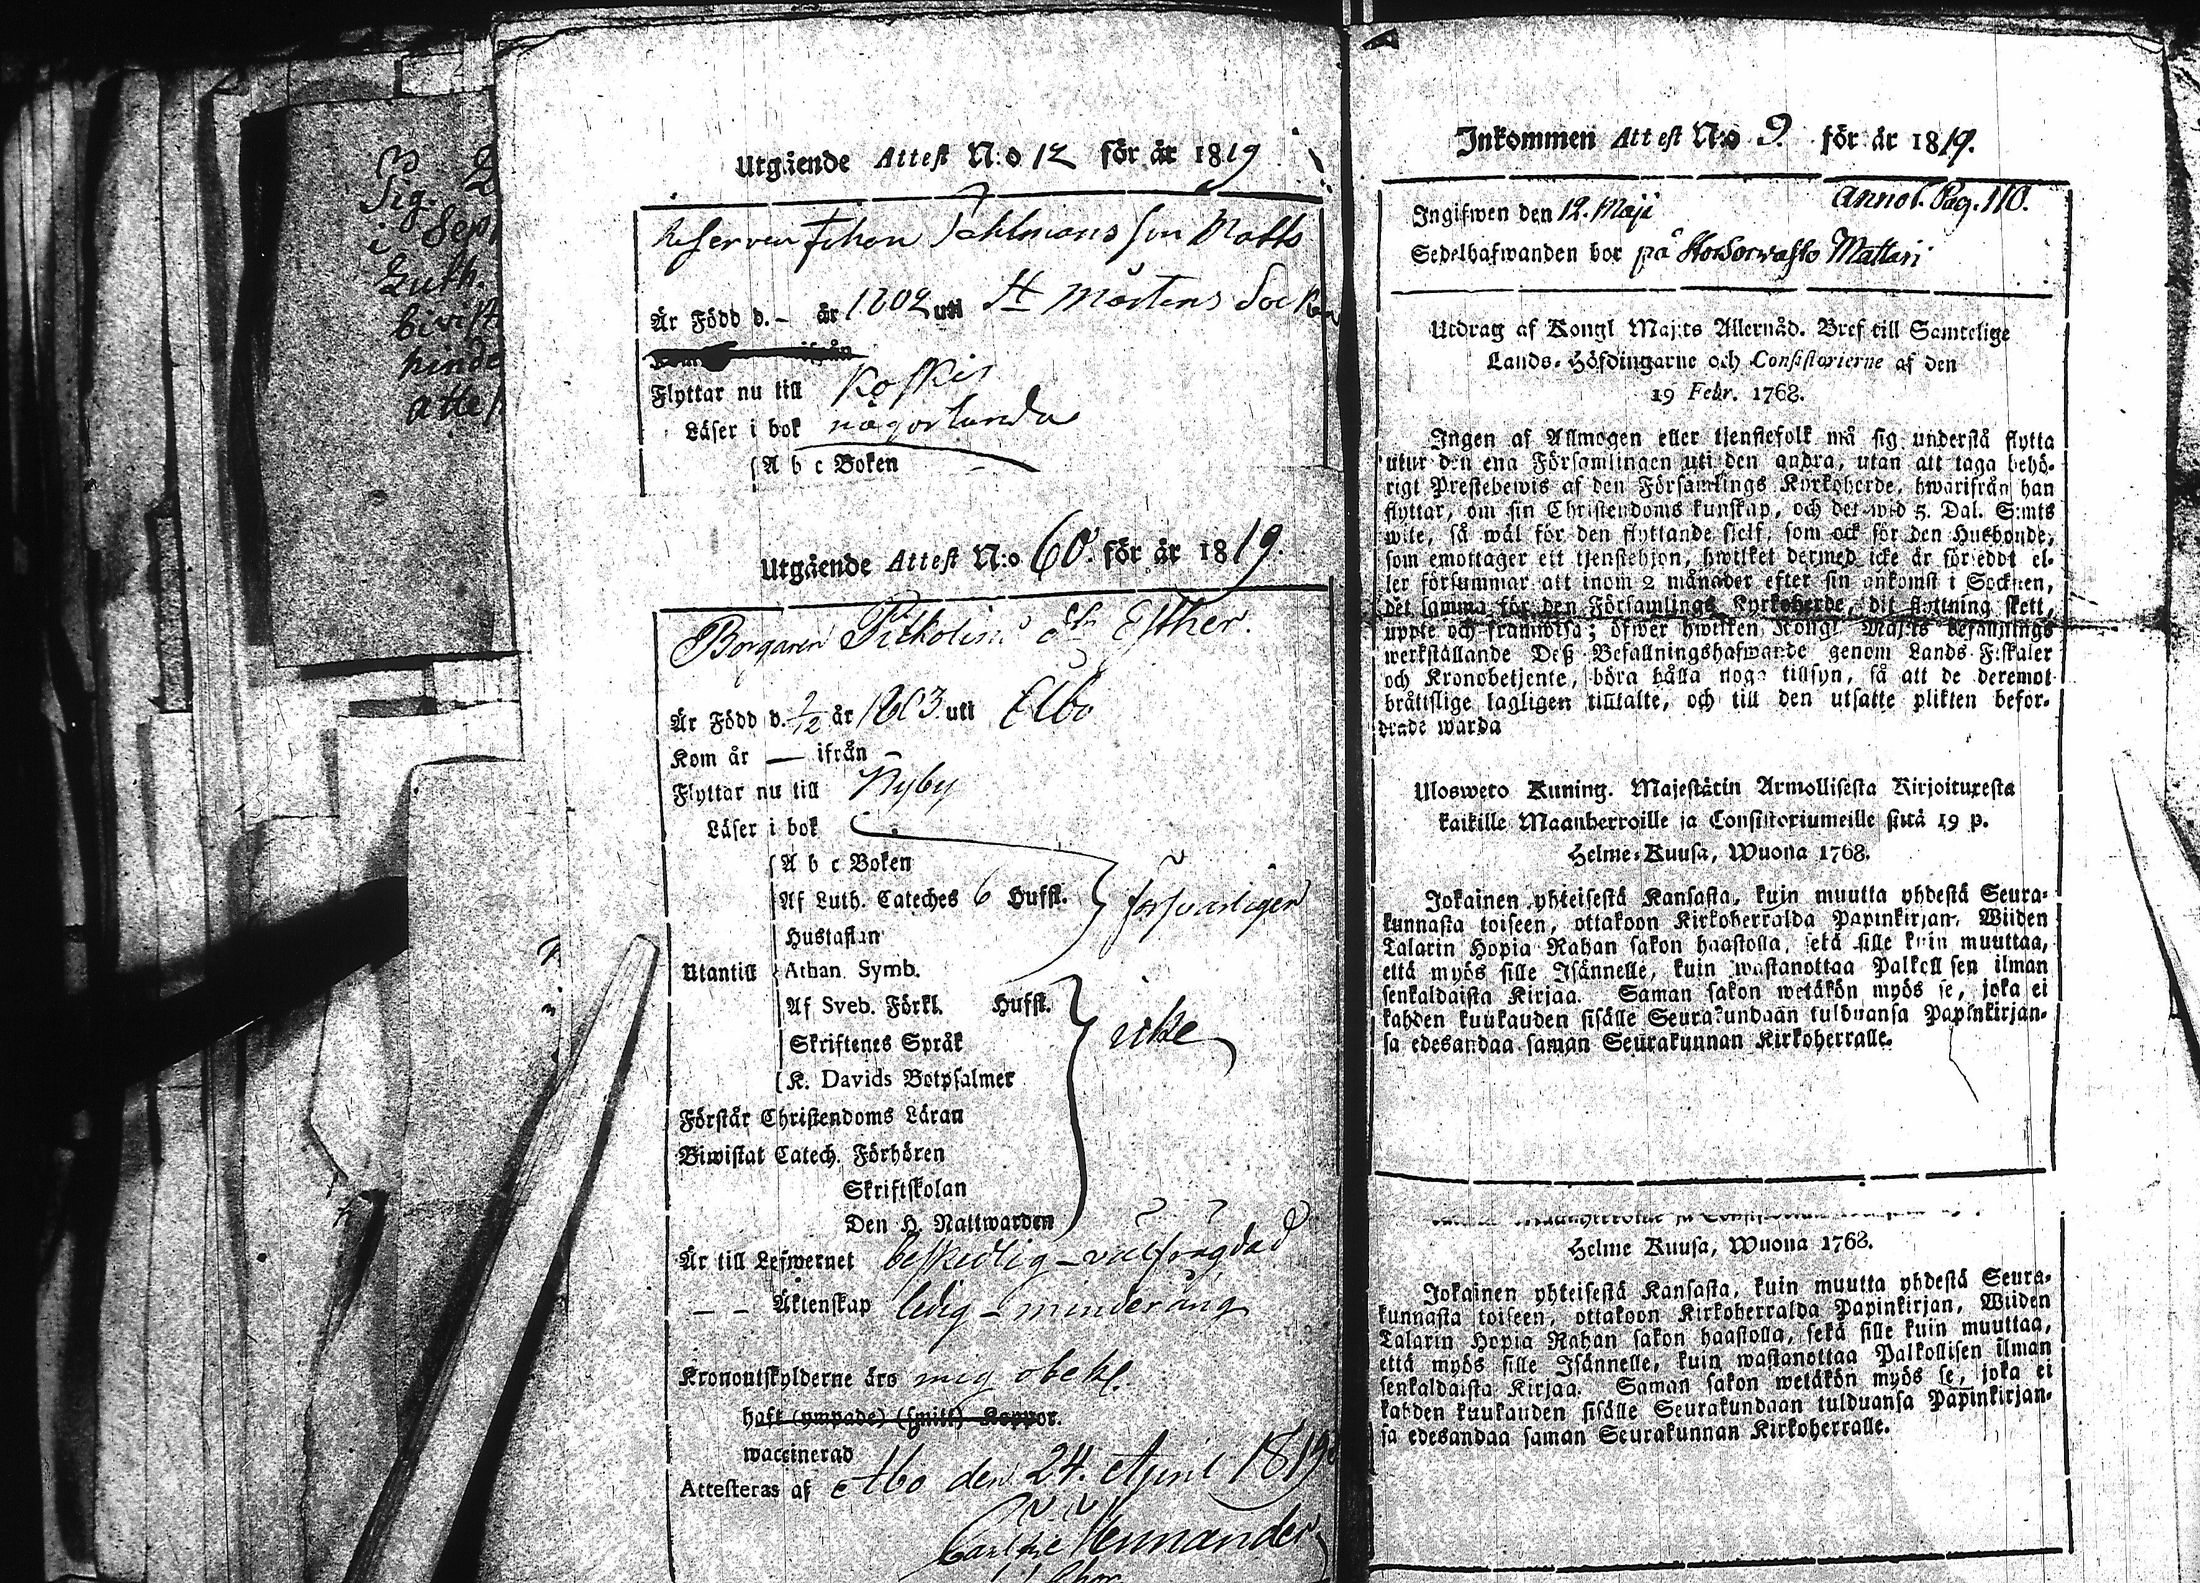 Sig.
i Sept
Luth.
bivist
hinde
attest
Utgående Attest N:o 12 för år 1819
Reserven Johan Sahlmans son Matts
Är Född d. - år 1802 uti St Mårtens Socken
ifrån
Flyttar nu till Koskis
Läser i bok någorlunda
A b c Boken
Utgående Attest N:o 60. för år 1819.
Borgaren Pitkolins dtr Esther.
Är Född d. 2/12 år 1803 uti Åbo
Kom år — ifrån
Flyttar nu till Nyby
Läser i bok
A b c Boken
Af Luth. Cateches 6 Hufst. försvarligen
Hustaflan
Utantill Athan. Symb.
Af Sveb. Förkl. Hufst.
Skriftenes Språk icke
K. Davids Botpsalmer
Förstår Christendoms Läran
Biwistat Catech. Förhören
Skriftskolan
Den H. Nattwarden
Är till Lefwernet beskedlig - välfrägdad
— — Äktenskap ledig - minderårig
Kronoutskylderne äro mig obek.
haft (ympade) (smitt) Koppor.
waccinerad
Attesteras af Åbo den 24. April 1819.
Hernander
Inkommen Attest N:o 9. för år 1819.
Ingifwen den 12. Maji Annot. Pag. 110.
Sedelhafwanden bor på Mattari
Utdrag af Kongl Maj:ts Allernåd. Bref till Samtelige
Lands-Höfdingarne och Consistorierne af den
19 Febr. 1768.
Ingen af Allmogen eller tjenstefolk må sig understå flytta
utur den ena Församlingen uti den andra, utan att taga behö-
rigt Prestebewis af den Församlings Kyrkoherde, hwarifrån han
flyttar, om sin Christendoms kunskap, och det wid 5. Dal. S:mts
wite, så wäl för den flyttande sielf, som ock för den Husbonde,
som emottager ett tjenstehjon, hwilket dermed icke är försedt el-
ler försummar att inom 2 månader efter sin ankomst i Socknen,
det samma för den Församlings Kyrkoherde, dit flyttning skett,
uppte och framwisa; öfwer hwilken Kongl Maj:ts befallnings
werkställande Deß Befallningshafwande genom Lands-Fiskaler
och Kronobetjente, böra hålla noga tillsyn, så att de deremot
bråttslige lagligen tilltalte, och till den utsatte plikten befor-
drade warda
Ulosweto Kuning. Majestätin Armollisesta Kirjoituxesta
kaikille Maanherroille ja Consistoriumeille siitä 19 p.
Helme-Kuusa, Wuona 1768.
Jokainen yhteisestä Kansasta, kuin muutta yhdestä Seura-
kunnasta toiseen, ottakoon Kirkoherralda Papinkirjan, Wiiden
Talarin Hopia Rahan sakon haastolla, sekä sille kuin muuttaa,
että myös sille Isännelle, kuin wastanottaa Palkollisen ilman
senkaldaista Kirjaa. Saman sakon wetäkön myös se, joka ei
kahden kuukauden sisälle Seurakundaan tulduansa Papinkirjan-
sa edesandaa saman Seurakunnan Kirkoherralle.
Helme Kuusa, Wuona 1768.
Jokainen yhteisestä Kansasta, kuin muutta yhdestä Seura-
kunnasta toiseen, ottakoon Kirkoherralda Papinkirjan, Wiiden
Talarin Hopia Rahan sakon haastolla, sekä sille kuin muuttaa,
että myös sille Isännelle, kuin wastanottaa Palkollisen ilman
senkaldaista Kirjaa. Saman sakon wetäkön myös se, joka ei
kahden kuukauden sisälle Seurakundaan tulduansa Papinkirjan-
sa edesandaa saman Seurakunnan Kirkoherralle.